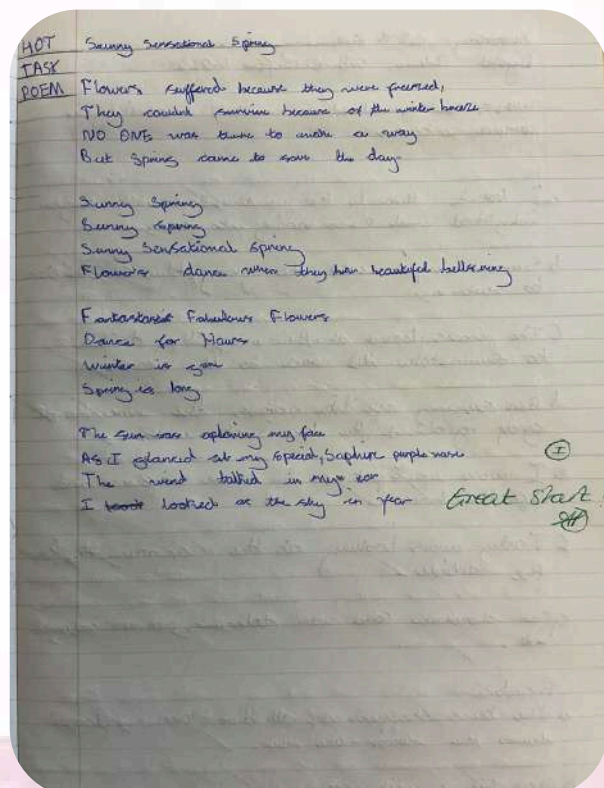 HOT Sunny Sensational Spring
TASK
POEM Flowers suffered because they were freezed,
They couldnt survive because of the winter breeze
NO ONE was there to make a way
But Spring came to save the day.
Sunny Spring
Sunny spring
Sunny Sensational Spring
Flowers dance when they hear beautiful bells ring
Fabulous Flowers
Dance for Hours
Winter is gone
Spring is long
The sun was my face
As I glanced at my special, Saphire purple vase
The wind talked in my ear
I looked at the sky in fear
I
Great Start